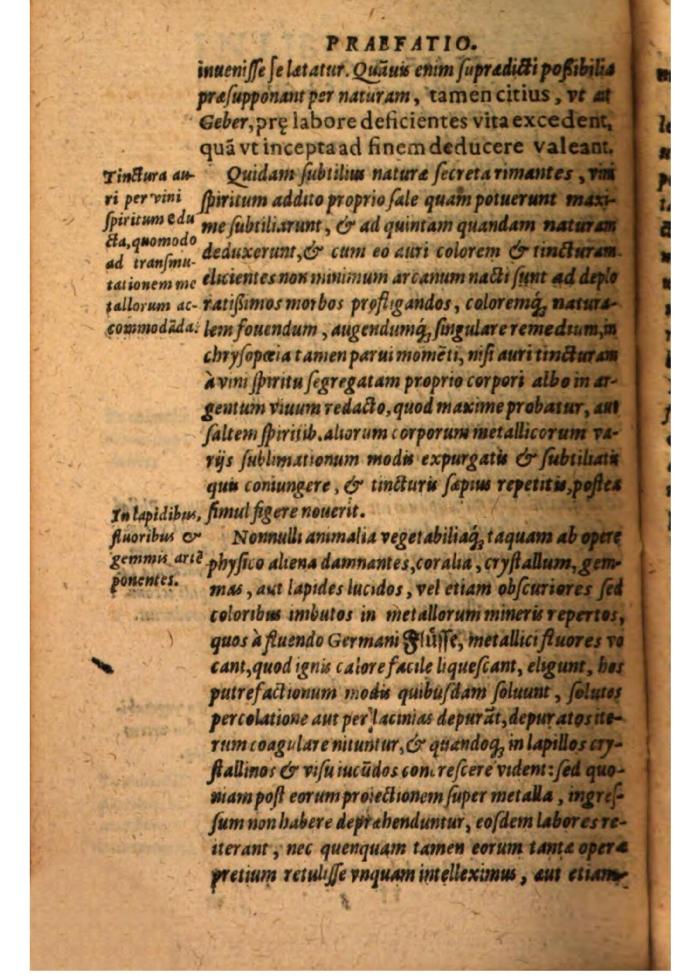 PRAEFATIO.
inuenisse se lætatur. Quãuis enim supradicti possibilia
præsupponant per naturam, tamen citius, vt ait
Geber, prę labore deficientes vita excedent,
quã vt incepta ad finem deducere valeant.
Tinctura au-
ri per vini
spiritum edu
cta, quomodo
ad transmu-
tationem me
tallorum ac-
commodãda.
Quidam subtilius naturæ secreta rimantes, vini
spiritum addito proprio sale quam potuerunt maxi-
me subtiliarunt, & ad quintam quandam naturam
deduxerunt, & cum eo auri colorem & tincturam
elicientes non minimum arcanum nacti sunt ad deplo
ratissimos morbos profligandos, coloremq́; natura-
lem fouendum, augendumq́; singulare remedium, in
chrysopœia tamen parui momẽti, nisi auri tincturam
à vini spiritu segregatam proprio corpori albo in ar-
gentum viuum redacto, quod maxime probatur, aut
saltem spiritib. aliorum corporum metallicorum va-
rijs sublimationum modis expurgatis & subtiliatis
quis coniungere, & tincturis sæpius repetitis, postea
simul figere nouerit.
In lapidibus,
fluoribus &
gemmis artẽ
ponentes.
Nonnulli animalia vegetabiliaq́; taquam ab opere
physico aliena damnantes, coralia, crystallum, gem-
mas, aut lapides lucidos, vel etiam obscuriores sed
coloribus imbutos in metallorum mineris repertos,
quos à fluendo Germani Flüsse, metallici fluores vo
cant, quod ignis calore facile liquescant, eligunt, hos
putrefactionum modis quibusdam soluunt, solutos
percolatione aut per lacinias depurãt, depuratos ite-
rum coagulare nituntur, & quandoq́; in lapillos cry-
stallinos & visu iucũdos concrescere vident: sed quo-
niam post eorum proiectionem super metalla, ingres-
sum non habere depræhenduntur, eosdem labores re-
iterant, nec quenquam tamen eorum tantæ operæ
pretium retulisse vnquam intelleximus, aut etiam